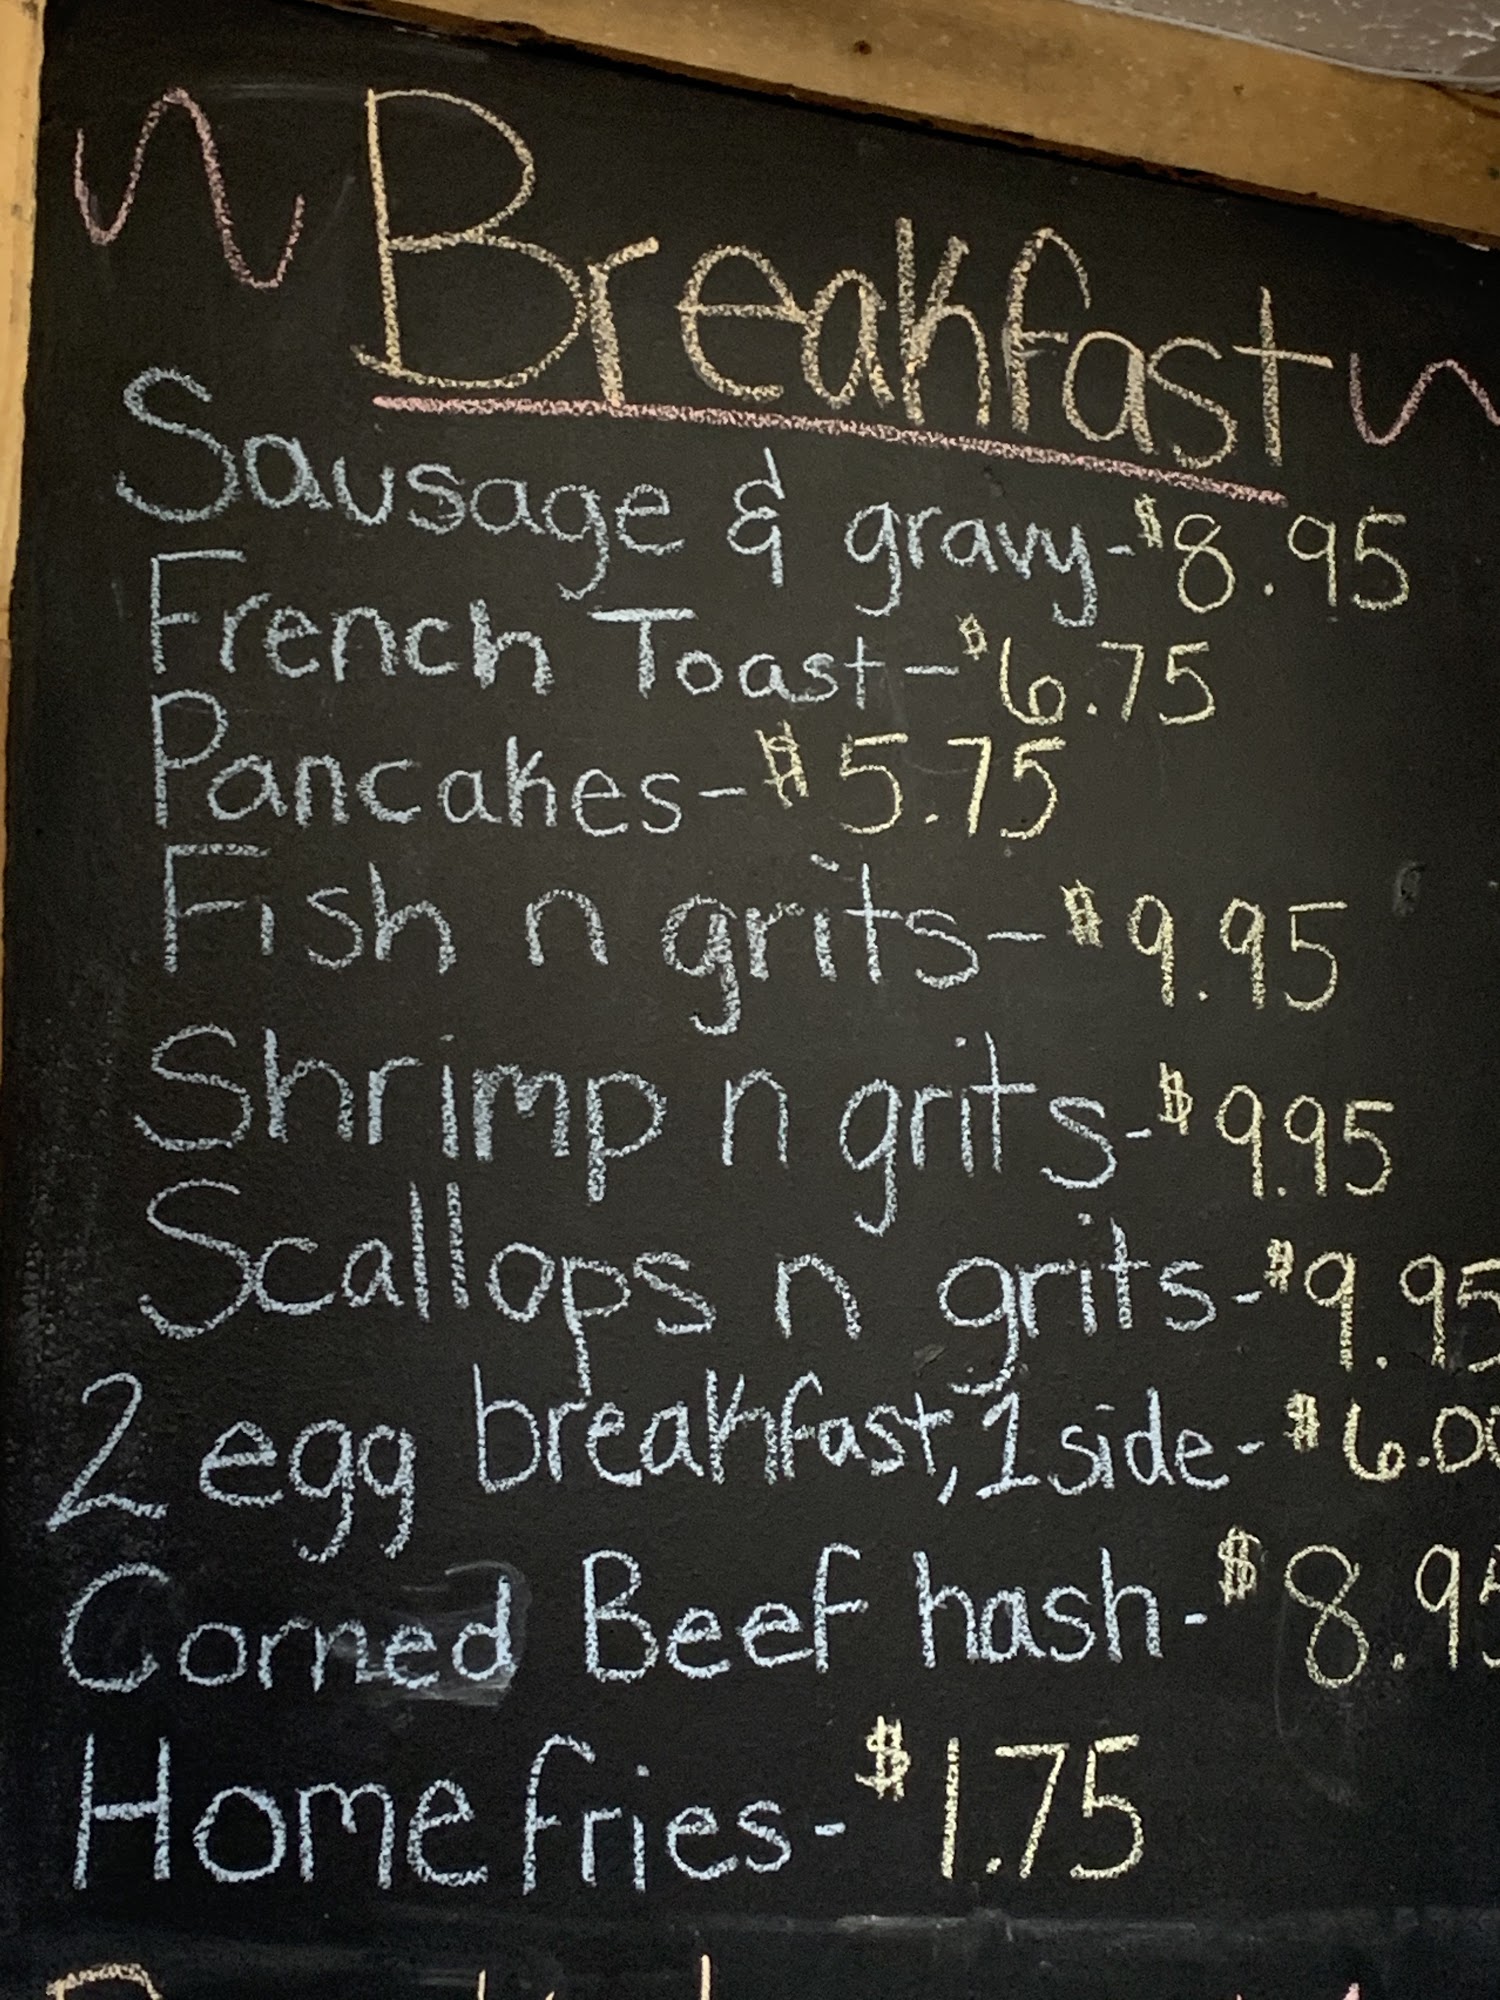 Breakfast
Sausage & gravy-$8.95
French Toast-$6.75
Pancakes-$5.75
Fish n grits-$9.95
Shrimp n grits-$9.95
Scallops n grits-$9.95
2 egg breakfast, 1 side-$6.00
Corned Beef hash-$8.95
Home fries-$1.75